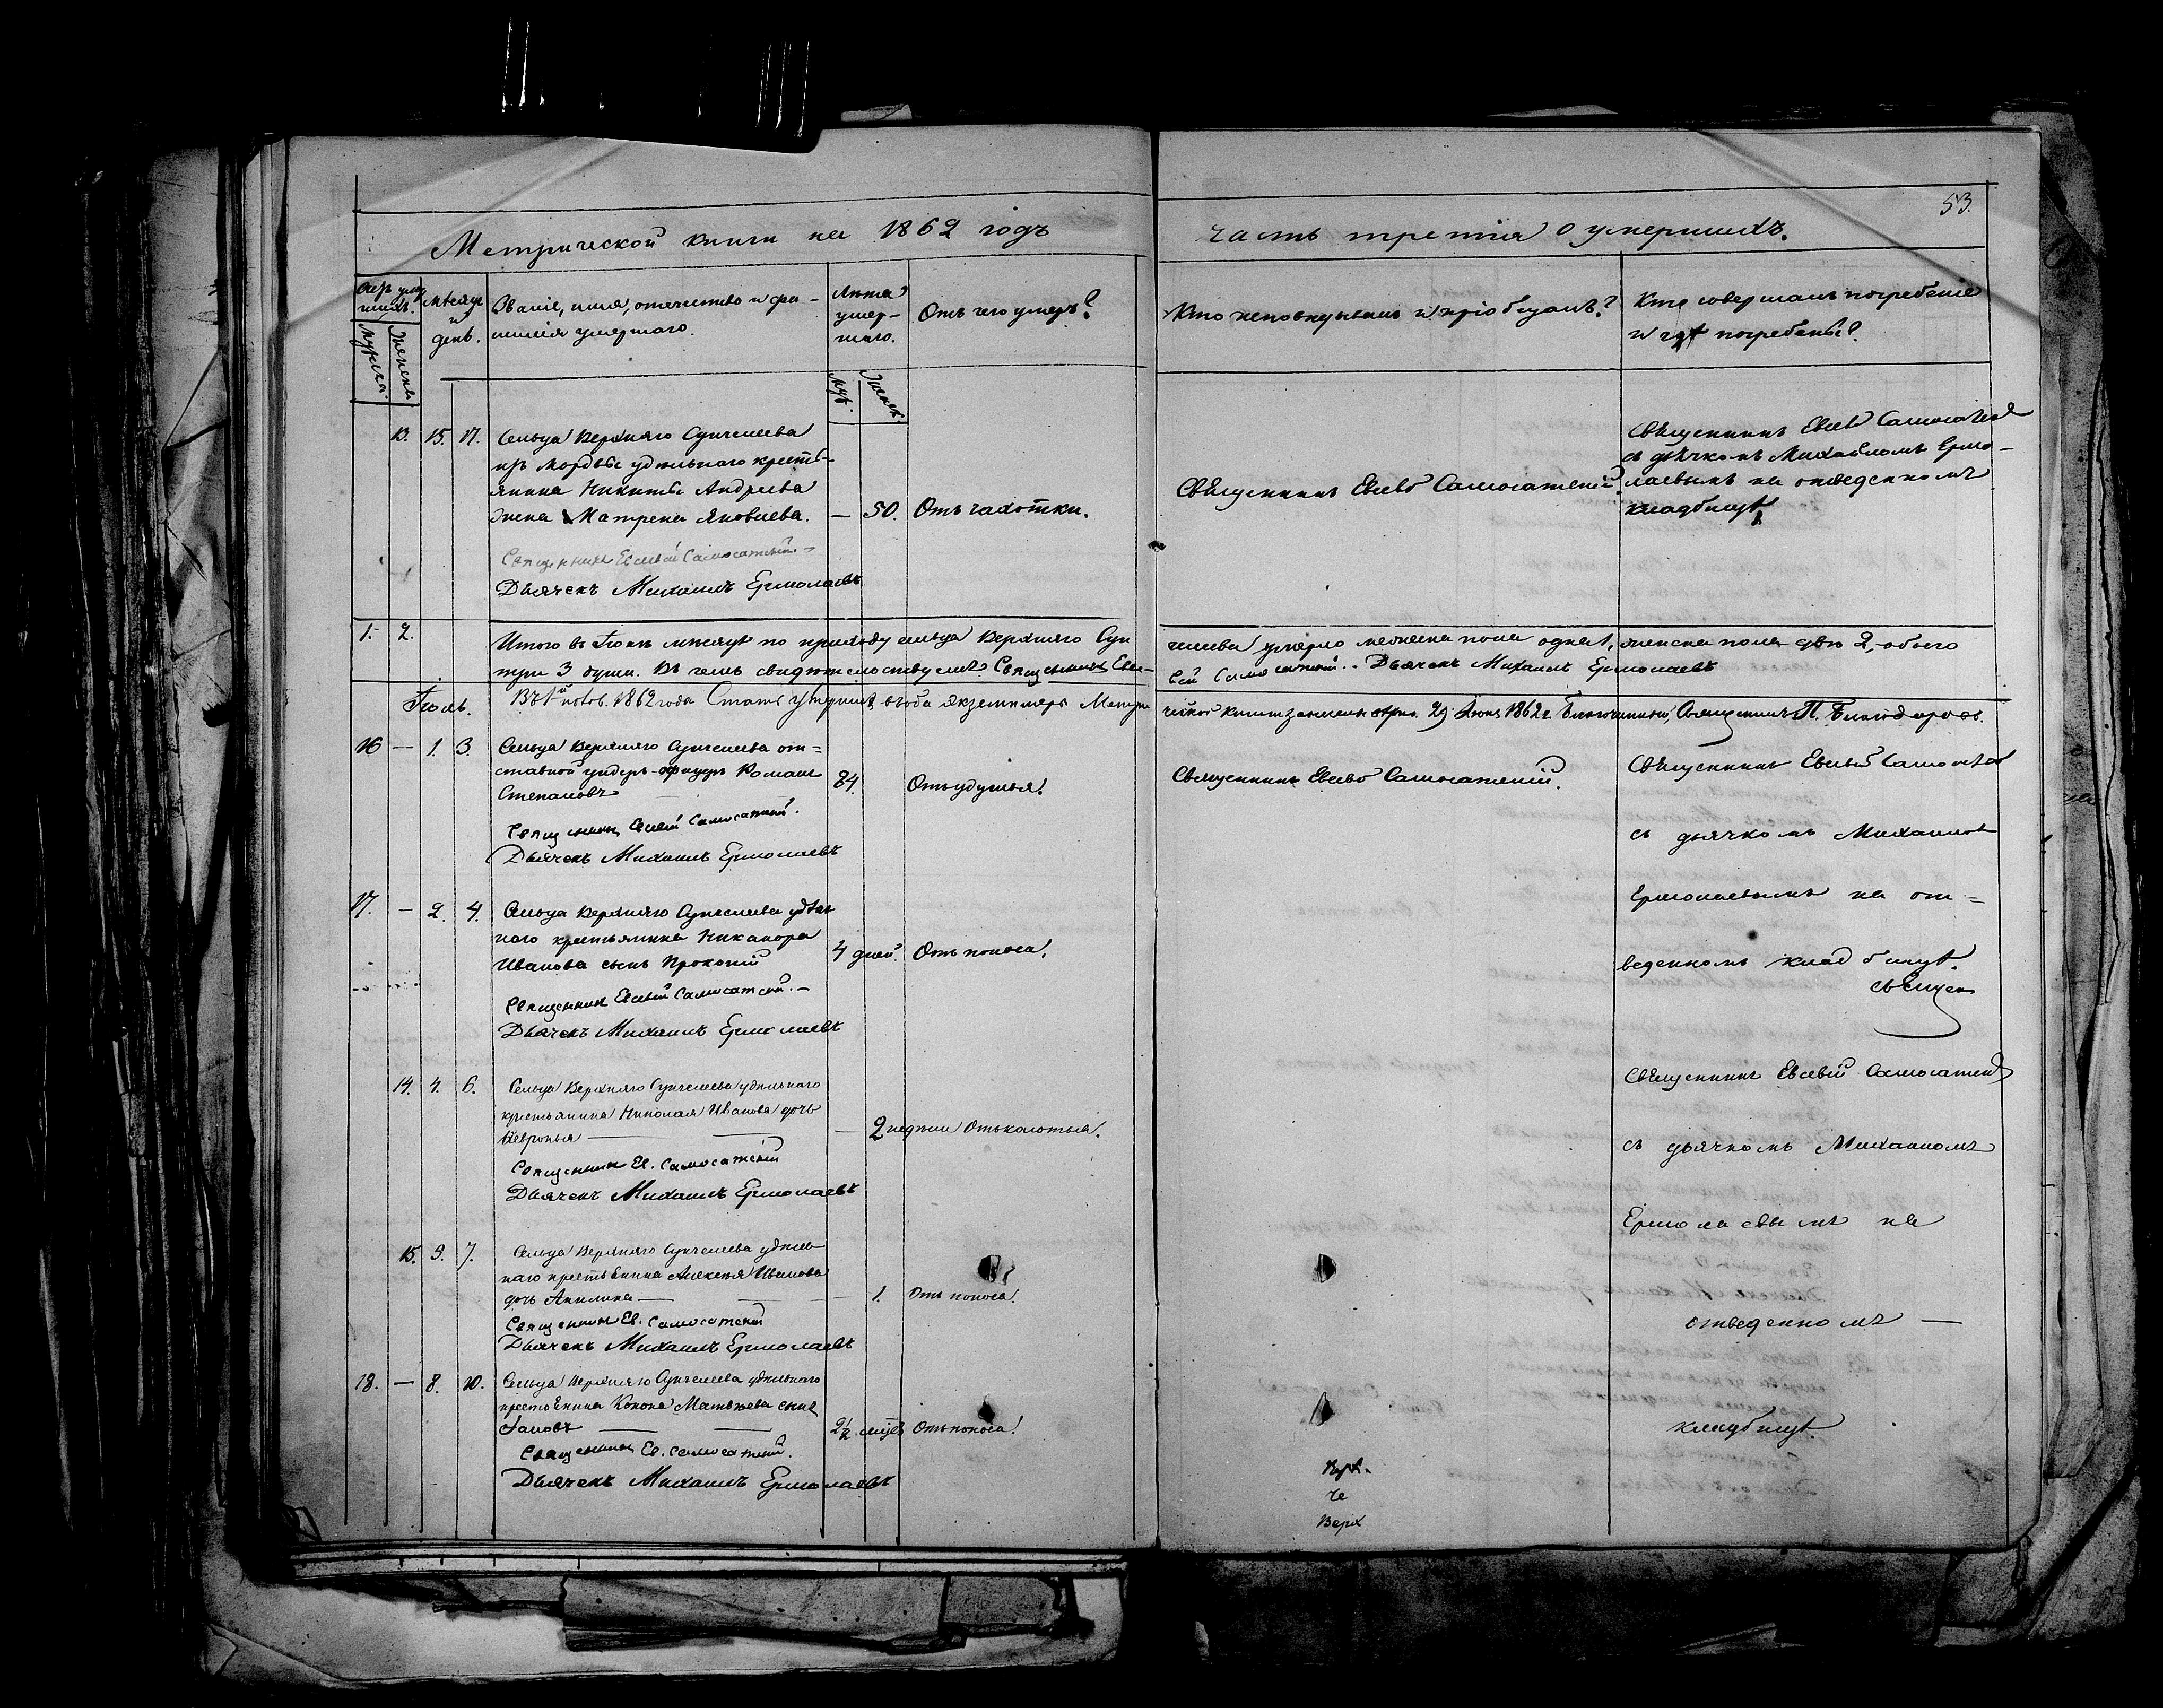 53.
Метрической книги на 1862 годъ
часть третія о умершихъ.
Мужеск.
Женска
Мѣсяцъ
и
день.
Званіе, имя, отечество и фа-
милія умершаго.
Лѣта
умер-
шаго.
Муж.
Женск.
Отъ чего умеръ?
Кто исповѣдывалъ и пріобщалъ?
Кто совершалъ погребеніе
и гдѣ погребенъ?
13. 15. 17. Сельца Верхняго Сунчелеева
изъ мордвы удѣльнаго кресть-
янина Никиты Андреева
жена Матрена Яковлева. — 50. Отъ чахотки.
Священникъ Евсевій Самосатскій. —
Дьячекъ Михаилъ Ермолаевъ
Священникъ Евсевій Самосатскій.
Священникъ Евсевій Самосатскій
съ дьячкомъ Михаиломъ Ермо-
лаевымъ на отведенномъ
кладбищѣ
1. 2. Итого въ Іюнѣ мѣсяцѣ по приходу сельца Верхняго Сун
челеева умерло мужеска пола одна 1, женска пола двѣ 2, обоего
три 3 души. Въ чемъ свидѣтельствуемъ Священникъ Евсе-
вій Самосатскій. - Дьячекъ Михаилъ Ермолаевъ
Іюль.
1862 года
1862 г. Благочинный, Священникъ П. Благодаровъ.
16 — 1. 3. Сельца Верхняго Сунчелеева от=
ставной ундеръ-офицеръ Романъ
Степановъ 84. Отъ удушья.
Священникъ Евсевій Самосатскій.
Дьячекъ Михаилъ Ермолаевъ
Священникъ Евсевій Самосатскій.
Священникъ Евсевій Самосатскій
съ дьячкомъ Михаиломъ
Ермолаевымъ на от=
веденномъ кладбищѣ.
Священ
17. — 2. 4. Сельца Верхняго Сунчелеева удѣль
наго крестьянина Никанора
Иванова сынъ Прокопій 4 дней. Отъ поноса.
Священникъ Евсевій Самосатскій. —
Дьячекъ Михаилъ Ермолаевъ
14. 4. 6. Сельца Верхняго Сунчелеева удѣльнаго
крестьянина Николая Иванова дочь
Февронья — — 2 недѣли Отъ колотья.
Священникъ Ев. Самосатскій
Дьячекъ Михаилъ Ермолаевъ
Священникъ Евсевій Самосатскій
съ дьячкомъ Михаиломъ
Ермолаевымъ на
отведенномъ —
кладбищѣ.
15. 5. 7. Сельца Верхняго Сунчелеева удѣль
наго крестьянина Алексѣя Иванова
дочь Акилина — — 1. Отъ поноса.
Священникъ Ев. Самосатскій
Дьячекъ Михаилъ Ермолаевъ
18. — 8. 10. Сельца Верхняго Сунчелеева удѣльнаго
крестьянина Конона Матвѣева сынъ
Іаковъ — — 2½ мѣсец Отъ поноса.
Священникъ Ев. Самосатскій.
Дьячекъ Михаилъ Ермолаевъ
че
Верх